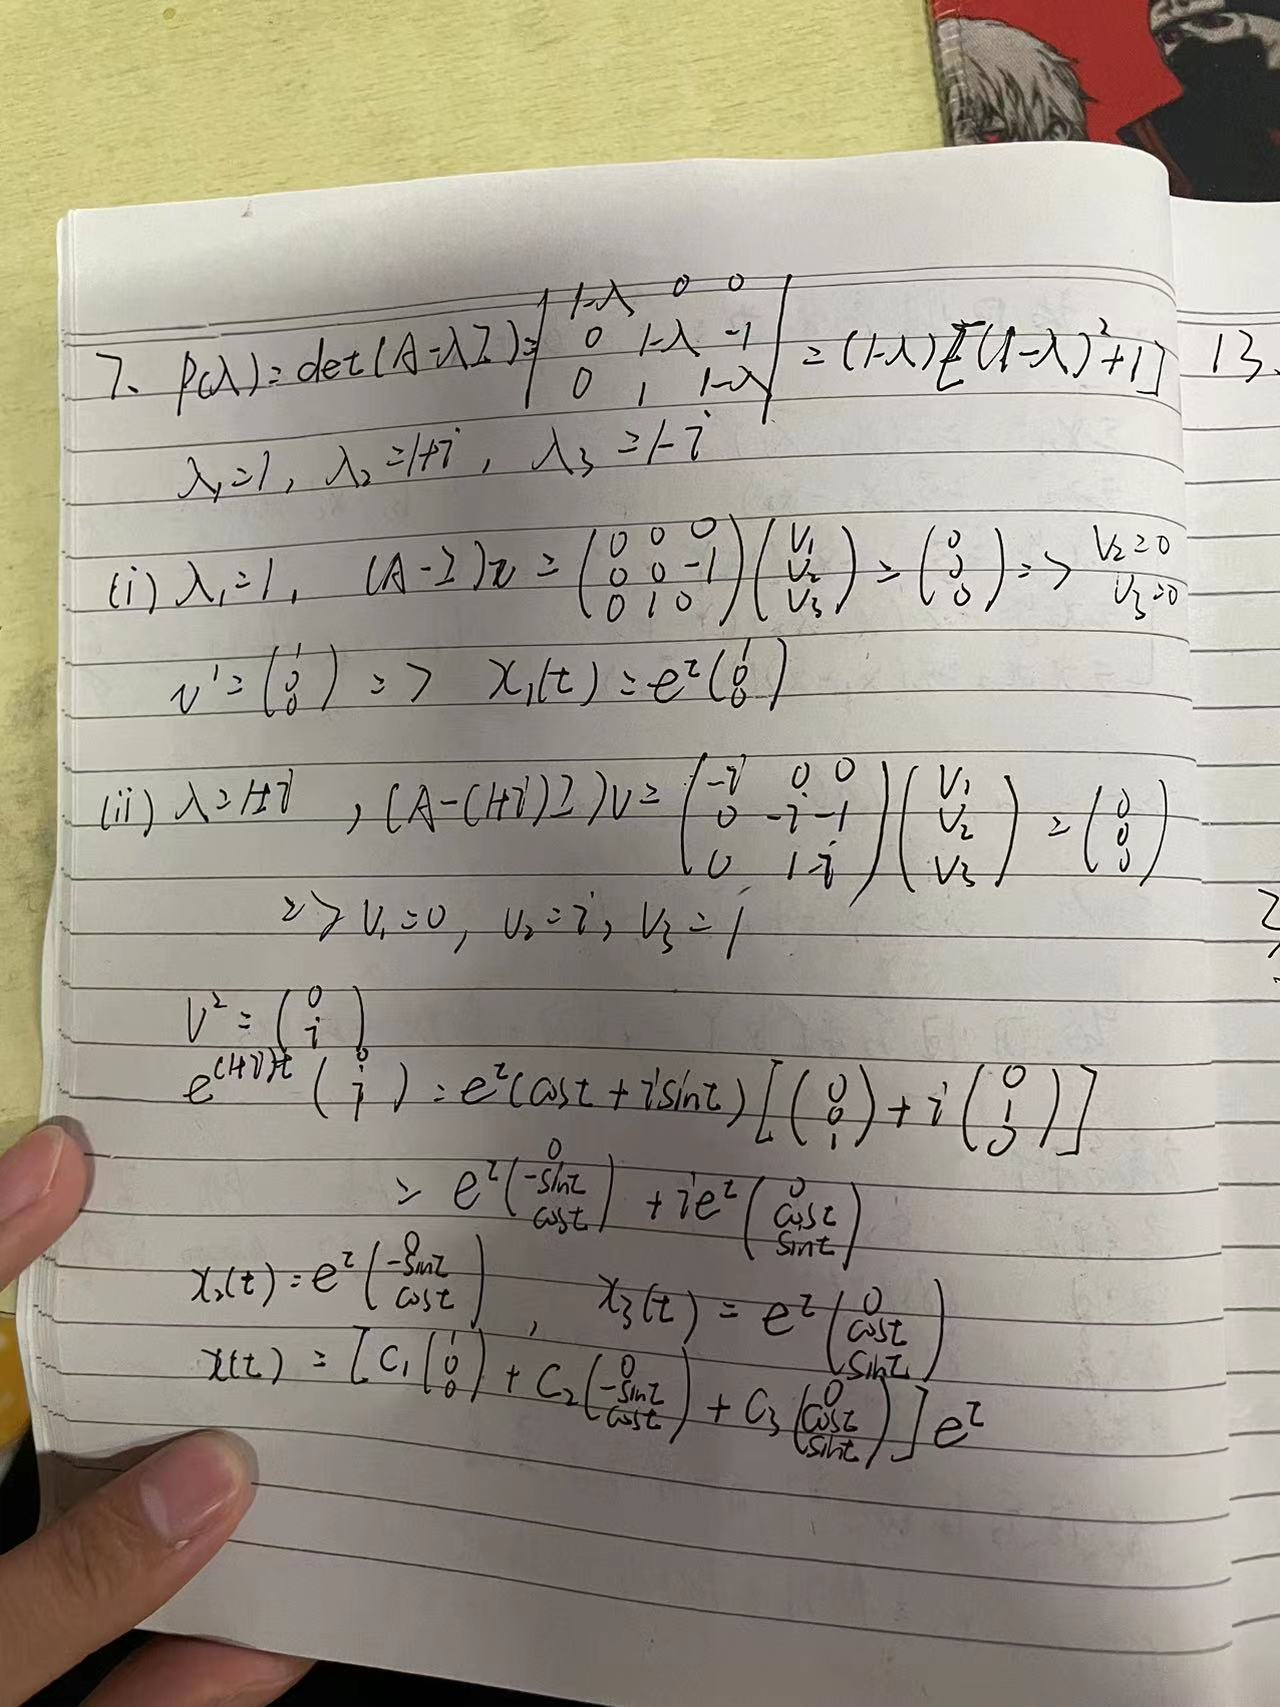 7. P(λ)=det(A-λI)=|1-λ 0 0; 0 1-λ -1; 0 1 1-λ|=(1-λ)[(1-λ)²+1] 13.
λ₁=1, λ₂=1+i, λ₃=1-i
(i) λ₁=1, (A-I)v=(0 0 0; 0 0 -1; 0 1 0)(V₁; V₂; V₃)=(0; 0; 0)=> V₂=0 V₃=0
v¹=(1; 0; 0) => x₁(t)=eᵗ(1; 0; 0)
(ii) λ=1+i, (A-(1+i)I)v=(-i 0 0; 0 -i -1; 0 1 -i)(V₁; V₂; V₃)=(0; 0; 0)
=> V₁=0, V₂=i, V₃=1
V²=(0; i; 1)
e^(1+i)t (0; i; 1)=eᵗ(cost+isint)[(0; 0; 1)+i(0; 1; 0)]
=eᵗ(0; -sint; cost)+ieᵗ(0; cost; sint)
x₂(t)=eᵗ(0; -sint; cost), x₃(t)=eᵗ(0; cost; sint)
x(t)=[C₁(1; 0; 0)+C₂(0; -sint; cost)+C₃(0; cost; sint)]eᵗ